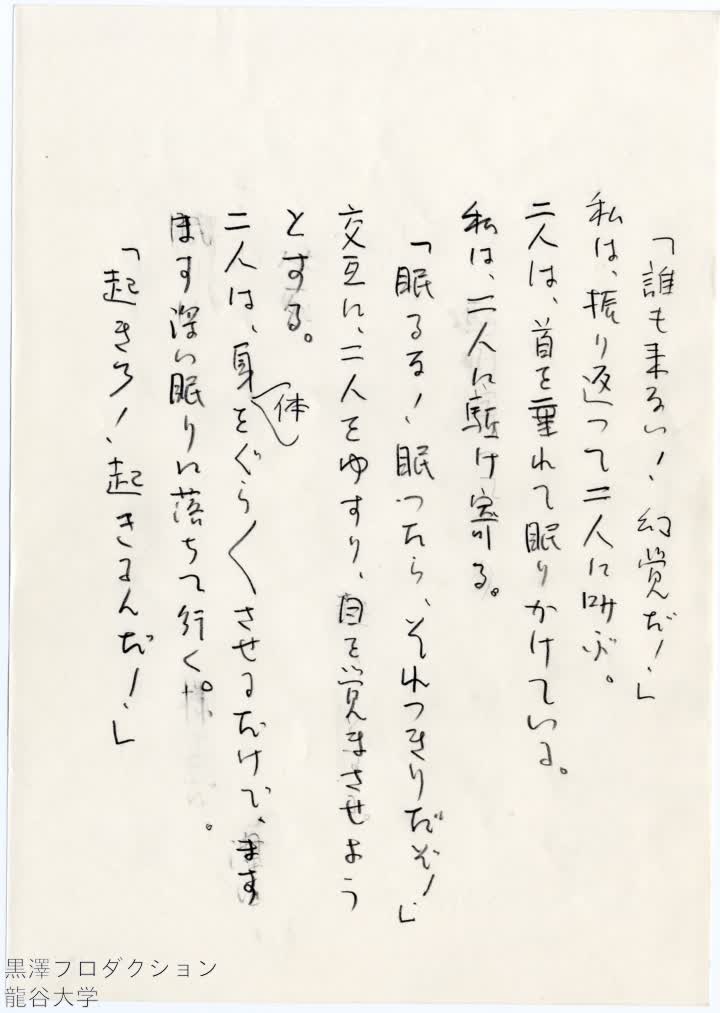 「誰も来ない！ 幻覚だ！」
私は、振り返って二人に叫ぶ。
二人は、首を垂れて眠りかけている。
私は、二人に駈け寄る。
「眠るな！ 眠ったら、それっきりだぞ！」
交互に、二人をゆすり、目を覚まさせよう
とする。
二人は、身体をぐら〳〵させるだけで、ます
ます深い眠りに落ちて行く。
「起きろ！ 起きるんだ！」
黒澤プロダクション
龍谷大学